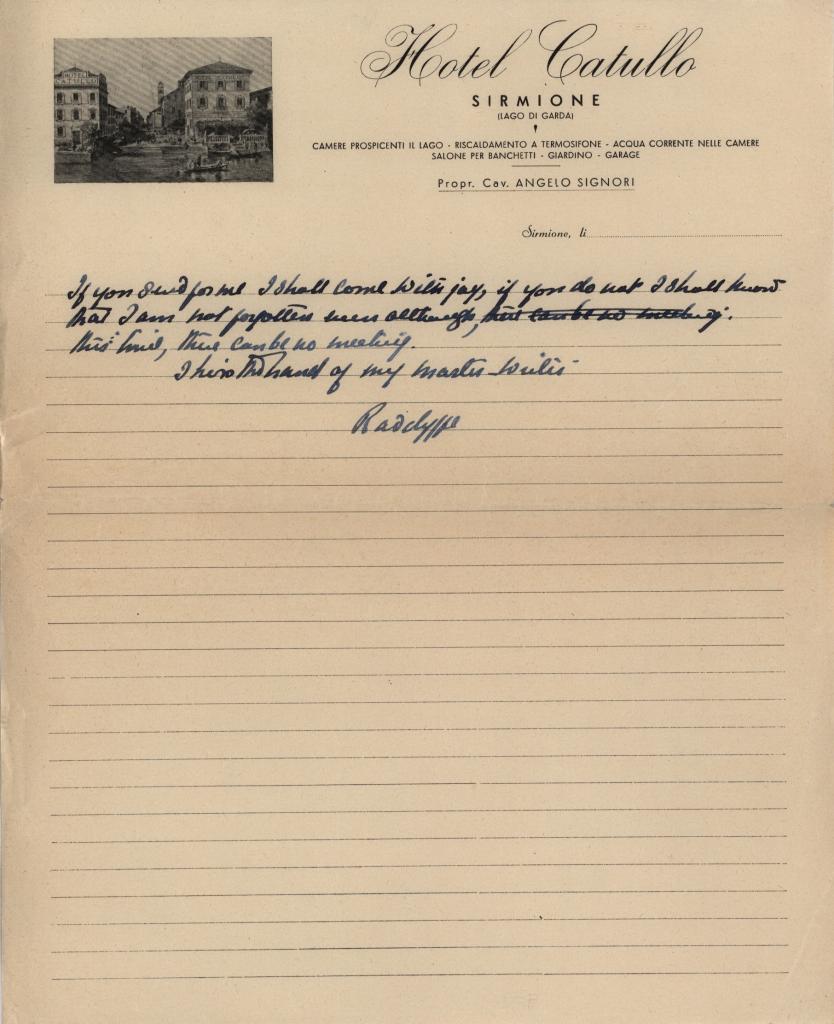 HOTEL
CATULLO
Hotel Catullo
SIRMIONE
(LAGO DI GARDA)
CAMERE PROSPICENTI IL LAGO - RISCALDAMENTO A TERMOSIFONE - ACQUA CORRENTE NELLE CAMERE
SALONE PER BANCHETTI - GIARDINO - GARAGE
Propr. Cav. ANGELO SIGNORI
Sirmione, li
If you send for me I shall come with joy, if you do not I shall know
that I am not forgotten even although, there can be no meeting.
this time, there can be no meeting.
I kiss the hand of my master
Radclyffe